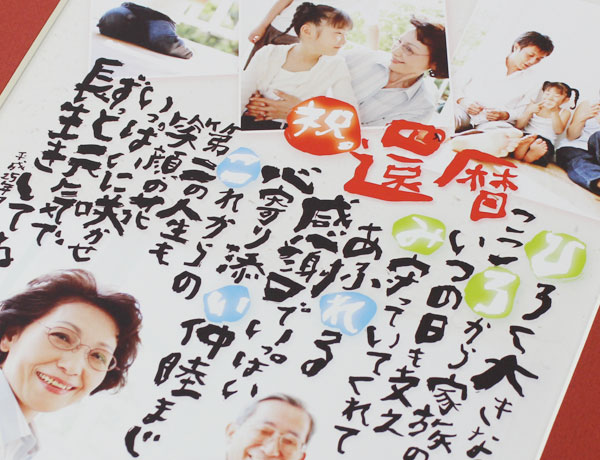 祝
還暦
ひろく大きな
こころから家族の
いつの日も支え
み守っていてくれて
あふれる
感謝でいっぱい
心寄り添い仲睦まじ
これからの
第二の人生も
笑顔の花
いっぱいに咲かせ
ずっと元気で
長生きしてね
平成25年